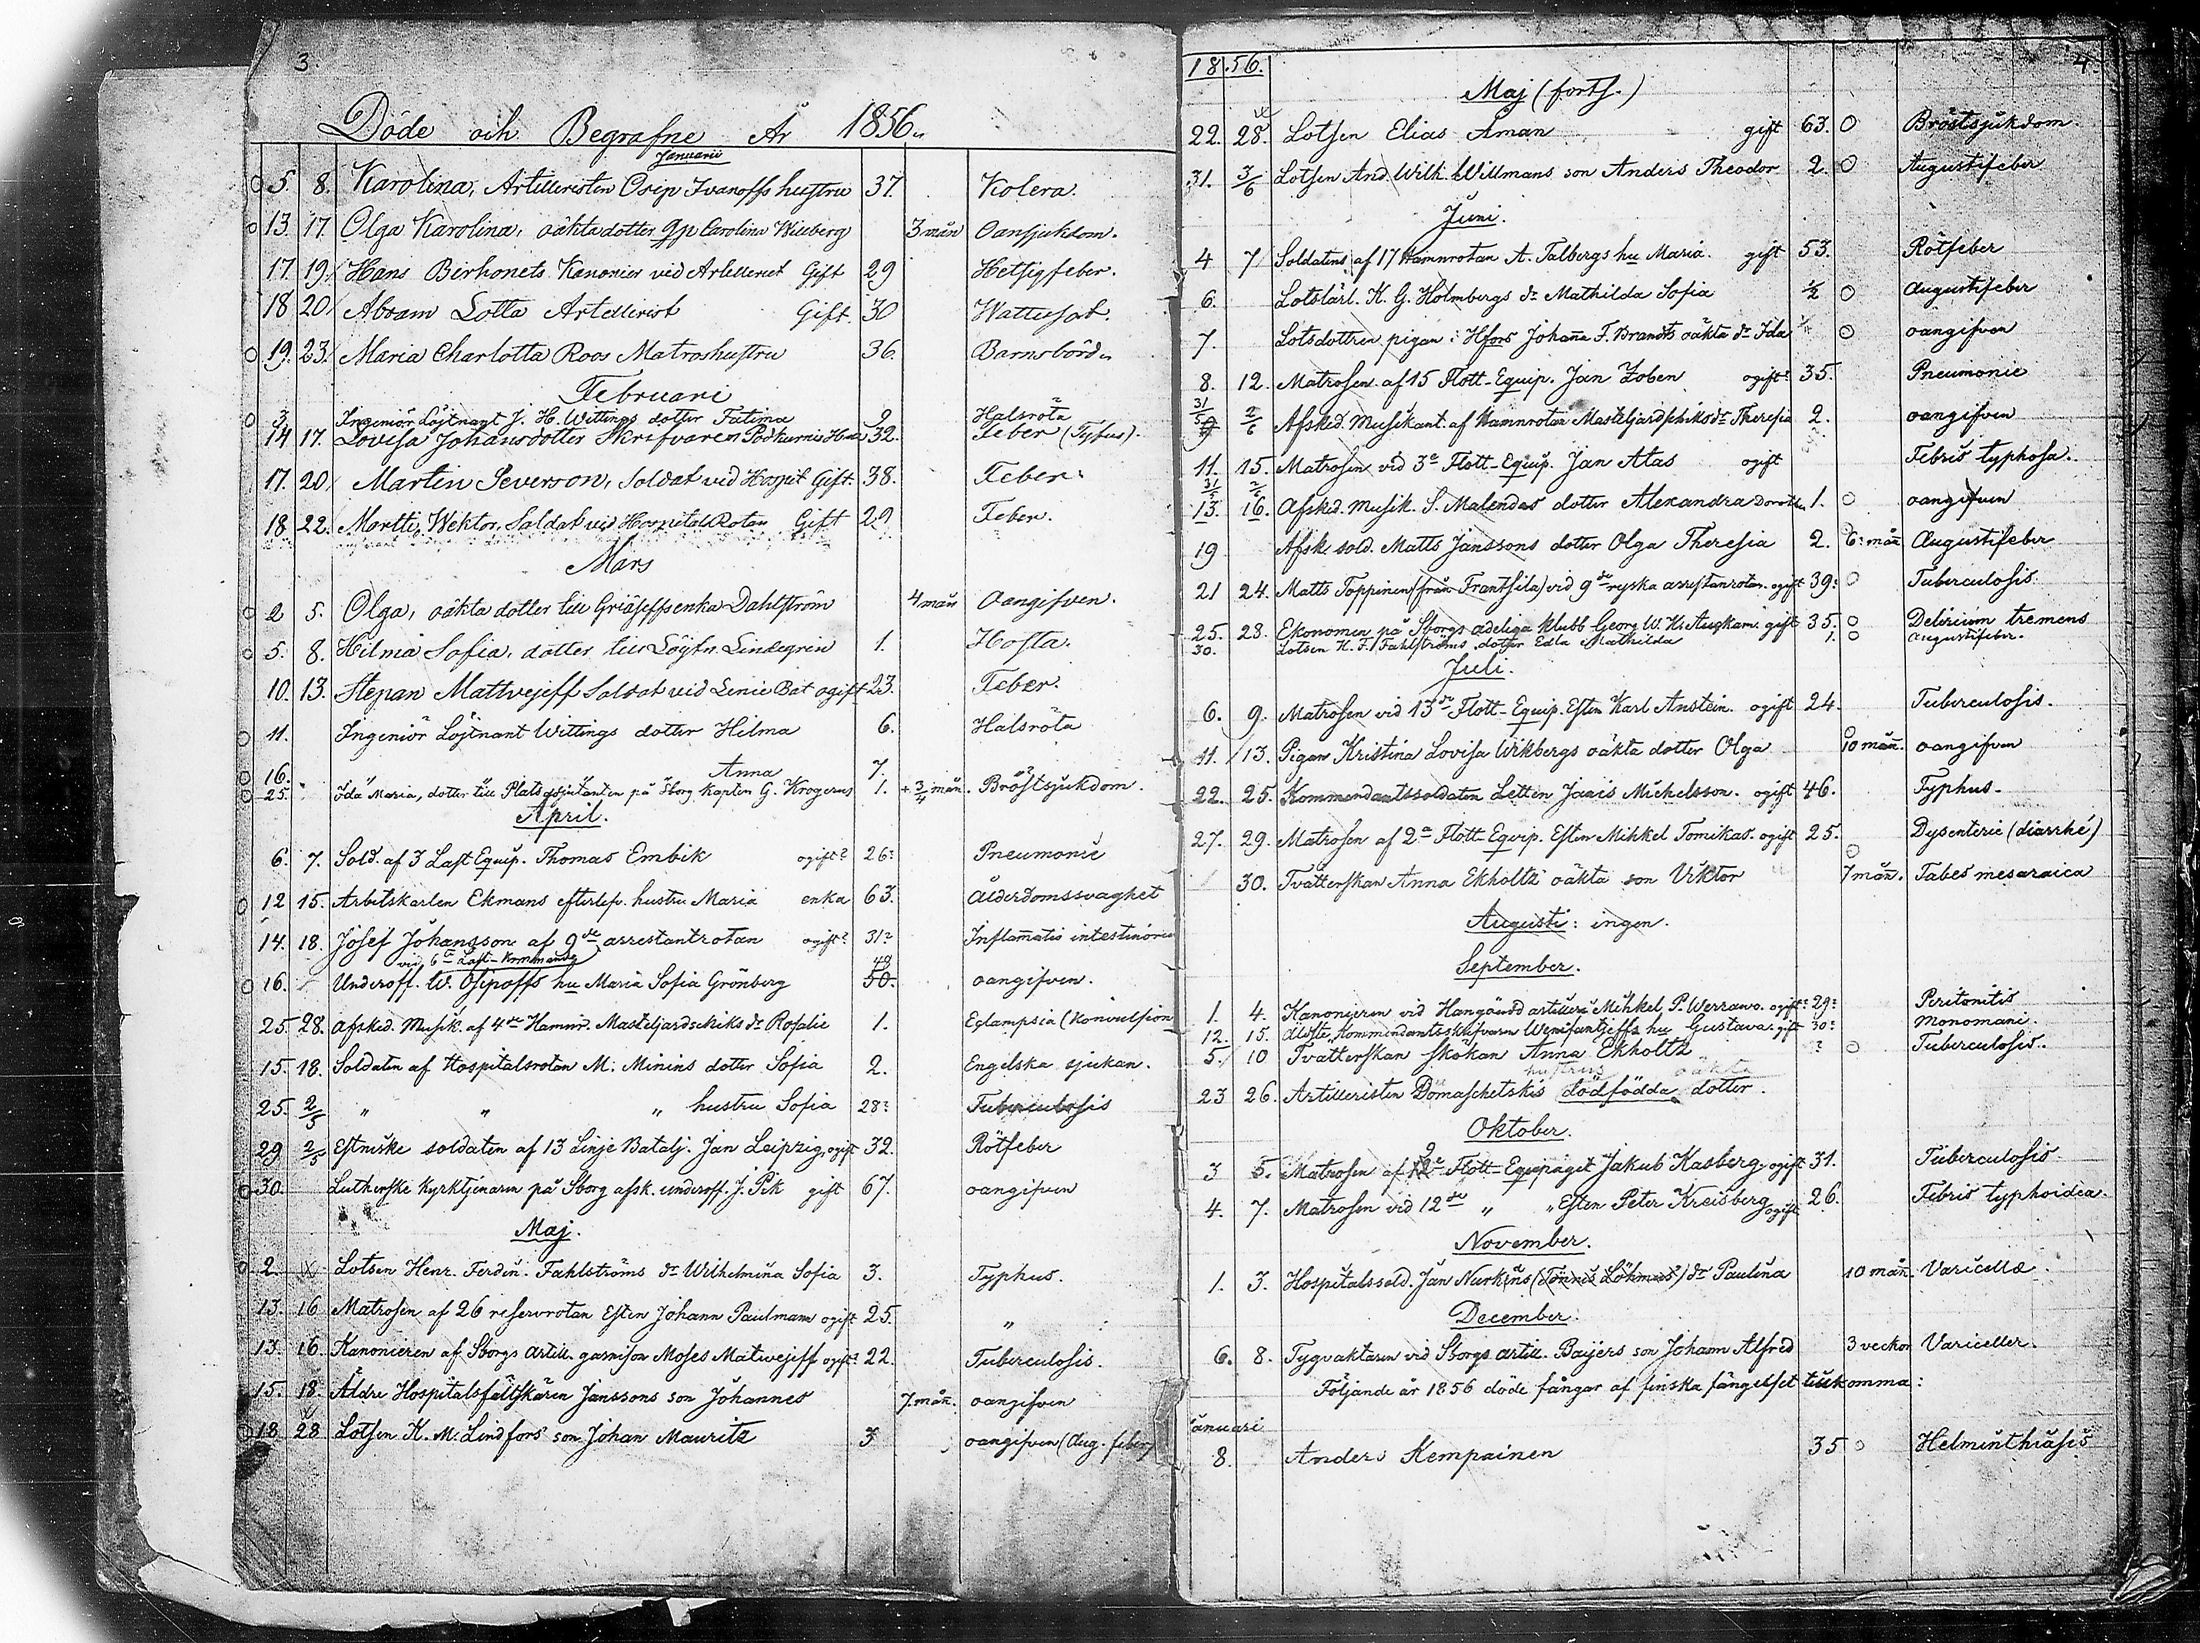 3.
Döde och Begrafne År 1856.
Januarii
5. 8. Karolina, Artilleristen Osip Ivanoffs hustru 37. Kolera.
13. 17. Olga Karolina, oäkta dotter Carolina Willberg 3 mån Oansjukdom.
17. 19. Hans Birhonets Kanonier vid Artilleriet Gift 29 Hetsigfeber.
18 20 Abram Lotta Artillerist Gift. 30 Wattusot.
19. 23. Maria Charlotta Roos Matroshustru 36. Barnsbörd.
Februari
3 Ingeniör Löjtnant J. H. Wittings dotter Fatima 2 Halsröta
14 17. Lovisa Johansdotter Skrifvaren 32. Feber (Tyfus).
17. 20. Martin Severson, Soldat vid Hospit Gift. 38. Feber.
18. 22. Martti Wektor, Soldat vid Hospital Rotan Gift 29 Feber.
Mars
2 5. Olga, oäkta dotter till enka Dahlström 4 mån Oangifven.
5. 8. Hilma Sofia, dotter till Löjtn. Lindegren 1. Hosta.
10. 13. Stepan Mattvejeff Soldat vid Linie Bat ogift 23. Feber.
11. Ingeniör Löjtnant Wittings dotter Hilma 6. Halsröta
16. Anna 7.
25. Ida Maria, dotter till Platsadjutanten på Sborg Kapten G. Krogerus 1. + 3/4 mån. Bröstsjukdom.
April.
6. 7. Sold. af 3 Last Equip. Thomas Embik ogift? 26? Pneumonie
12 15. Arbetskarlen Ekmans efterlef. hustru Maria enka 63. Ålderdomssvaghet
14. 18. Josef Johansson af 9de arrestantrotan ogift? 31? Inflammatio intestinorum
vid 6e Last-Kommando 49
16. Underoff. W. Osipoffs hu Maria Sofia Grönberg 50. oangifven.
25. 28. Afsked. Musik. af 4de Hamnr. Masteljardschiks dr Rosalie 1. Eglampsia (Konvulsion
15. 18. Soldaten af Hospitalsrotan M. Minins dotter Sofia 2. Engelska sjukan.
25. 2/5 " " " hustru Sofia 28? Tuberculosis
29 2/5 Estniske soldaten af 13 Linje Batalj. Jan Leipzig, ogift 32. Rötfeber
30. Lutherske Kyrktjenaren på Sborg afsk. underoff. J. Pik gift 67. oangifven
Maj.
2. Lotsen Henr. Ferdin. Fahlströms dr Wilhelmina Sofia 3. Typhus.
13. 16 Matrosen af 26 reservrotan Esten Johann Paulmann ogift 25. "
13. 16. Kanonieren af Sborgs artill. garnison Moses Matwejeff ogift? 22. Tuberculosis.
15. 18. Äldre Hospitalsfältskären Janssons son Johannes 7. mån. oangifven
18 28 Lotsen K. M. Lindfors son Johan Mauritz 3 oangifven (Aug. feber)
1856. 4.
Maj (forts.)
22. 28. Lotsen Elias Åman gift 63. Bröstsjukdom.
31. 3/6 Lotsen And. Wilh. Willmans son Anders Theodor 2. Augustifeber
Juni.
4 7 Soldatens af 17 Hamnrotan A. Talbergs hu Maria. gift 53. Rötfeber
6. Lotslärl. K. G. Holmbergs dr Mathilda Sofia 1/2 Augustifeber
7. Lotsdottren pigan i Hfors Johanna F. Brandts oäkta dr Ida oangifven
8. 12. Matrosen af 15 Flott-Equip. Jan Zoben ogift? 35. Pneumonie
31/5 2/6 Afsked. Musikant. af Hamnrotan Masteljardschiks dr Theresia 2. oangifven
11. 15. Matrosen vid 3e Flott-Equip. Jan Atas ogift Febris typhosa.
31/5 2/6
13. 16. Afsked. musik. S. Malendas dotter Alexandra Dorothea 1. oangifven
19 Afsk. sold. Matts Janssons dotter Olga Theresia 2. 6? mån Augustifeber
21 24. Matts Toppinen (från Frantsila) vid 9de ryska arrestanrotan. ogift 39? Tuberculosis.
25. 28. Ekonomen på Sborgs adeliga klubb Georg W. K. Augkam. gift 35. Delirium tremens
30. Lotsen H. F. Fahlströms dotter Edla Mathilda 1. Augustifeber.
Juli.
6. 9. Matrosen vid 13de Flott-Equip. Esten Karl Anstein. ogift 24. Tuberculosis.
11. 13. Pigan Kristina Lovisa Wikbergs oäkta dotter Olga 10 mån. oangifven
22. 25. Kommendantssoldaten Letten Janis Michelsson. ogift 46. Typhus.
27. 29. Matrosen af 2a Flott-Equip. Esten Mihkel Tomikas. ogift 25. Dysenterie (diarrhé)
30. Tvätterskan Anna Ekholtz oäkta son Viktor 7 mån. Tabes mesaraica
Augusti: ingen.
September.
1. 4. Kanonieren vid Hangöudd artilleri Mihkel P. Werrawo. ogift? 29? Peritonitis
12. 15. Äldste Kommendantsskrifvaren Wenifantjeffs hu Gustava. gift 30? Monomani.
5. 10 Tvätterskan skökan Anna Ekholtz ? Tuberculosis.
hustrus oäkta
23 26. Artilleristen Domaschetskis dödfödda dotter.
Oktober.
3 5. Matrosen af 12e Flott-Equipaget Jakub Kasberg. ogift 31. Tuberculosis.
4. 7. Matrosen vid 12de " " Esten Peter Kreisberg ogift 26. Febris typhoidea.
November.
1. 3. Hospitalssold. Jan Nurkins (Tönnis Löhmus) dr Paulina 10 mån. Varicellæ.
December.
6. 8. Tygvaktaren vid Sborgs artill. Baijers son Johann Alfred 3 veckor Variceller.
Följande år 1856 döde fångar af finska fängelset tillkomma:
Januari
8. Anders Kempainen 35 Helminthiasis